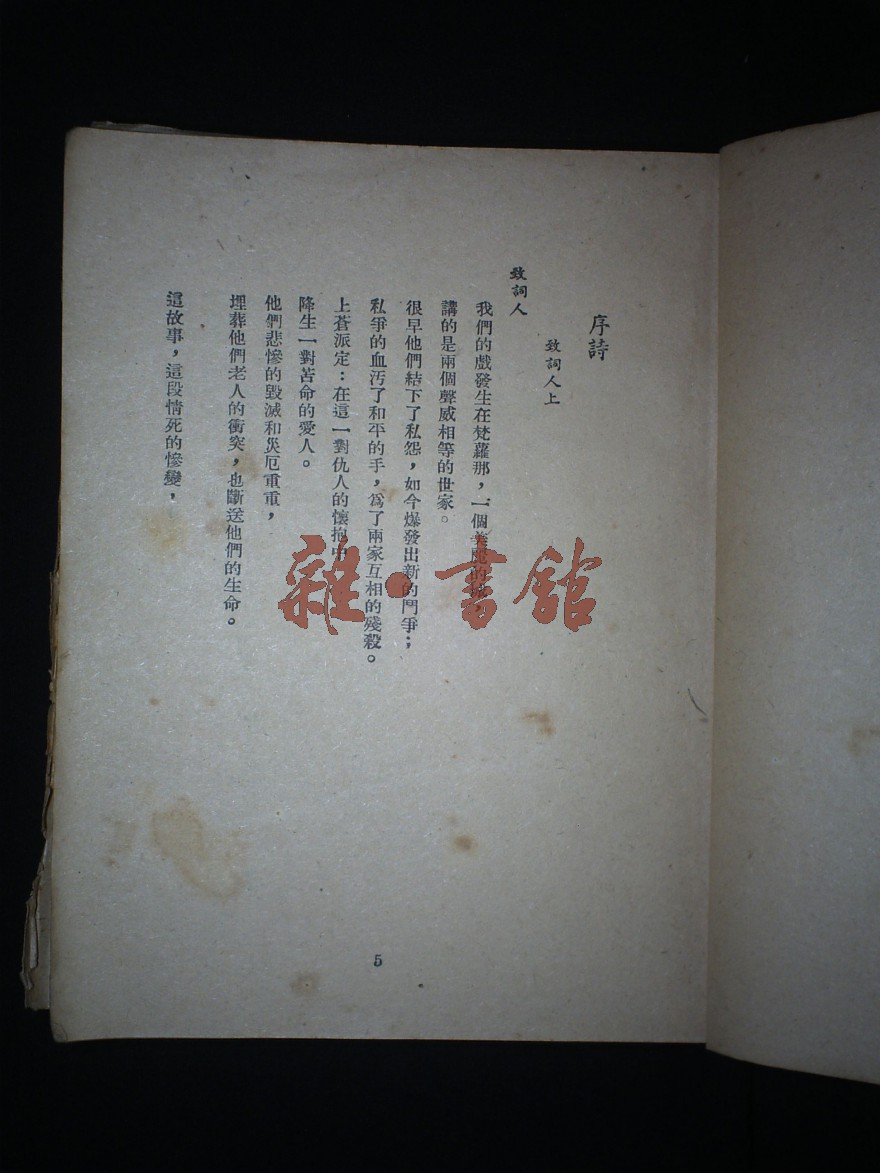 序詩
致詞人上
致詞人
我們的戲發生在梵蘿那，一個美麗的城，
講的是兩個聲威相等的世家。
很早他們結下了私怨，如今爆發出新的鬥爭；
私爭的血汚了和平的手，爲了兩家互相的殘殺。
上蒼派定：在這一對仇人的懷抱中
降生一對苦命的愛人。
他們悲慘的毀滅和災厄重重，
埋葬他們老人的衝突，也斷送他們的生命。
這故事，這段情死的慘變，
5
雜·書館